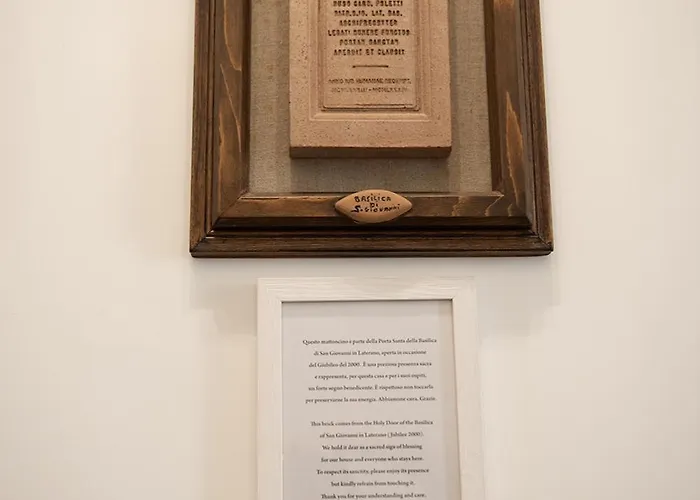 HUGO CARD. POLETTI
PATR.S.JO. LAT. BAS.
ARCHIPRESBYTER
LEGATI MUNERE FUNCTUS
PORTAM SANCTAM
APERUIT ET CLAUSIT
BASILICA
DI
S. GIOVANNI
Questo mattoncino è parte della Porta Santa della Basilica
di San Giovanni in Laterano, aperta in occasione
del Giubileo del 2000. È una preziosa presenza sacra
e rappresenta, per questa casa e per i suoi ospiti,
un forte segno benedicente. È rispettoso non toccarlo
per preservarne la sua energia. Abbiamone cura. Grazie.
This brick comes from the Holy Door of the Basilica
of San Giovanni in Laterano (Jubilee 2000).
We hold it dear as a sacred sign of blessing
for our house and everyone who stays here.
To respect its sanctity, please enjoy its presence
but kindly refrain from touching it.
Thank you for your understanding and care.